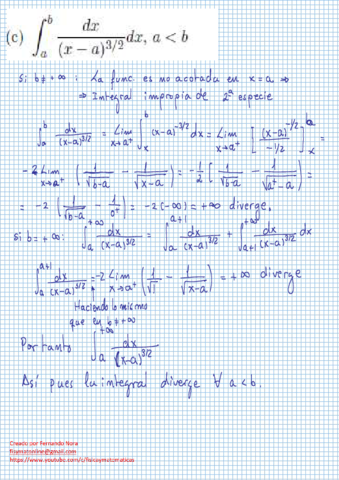 (c) ∫_a^b dx/(x − a)^{3/2} dx, a < b
Si b ≠ +∞ : La func. es no acotada en x = a ⇒
⇒ Integral impropia de 2ª especie
∫_a^b dx/(x-a)^{3/2} = Lim_{x→a⁺} ∫_x^b (x-a)^{-3/2} dx = Lim_{x→a⁺} [ (x-a)^{-1/2} / -1/2 ]_x^b =
-2 Lim_{x→a⁺} ( 1/√(b-a) − 1/√(x-a) ) = -1/2 [ 1/√(b-a) − 1/√(a⁺-a) ] =
= -2 ( 1/√(b-a) − 1/0⁺ ) = -2(-∞) = +∞ diverge.
si b = +∞ : ∫_a^{+∞} dx/(x-a)^{3/2} = ∫_a^{a+1} dx/(x-a)^{3/2} + ∫_{a+1}^{+∞} dx/(x-a)^{3/2} dx
∫_a^{a+1} dx/(x-a)^{3/2} = -2 Lim_{x→a⁺} ( 1/√1 − 1/√(x-a) ) = +∞ diverge
Haciendo lo mismo
que en b ≠ +∞
Por tanto ∫_a^{+∞} dx/(x-a)^{3/2}
Así pues la integral diverge ∀ a < b.
Creado por Fernando Nora
fitxmatonline@gmail.com